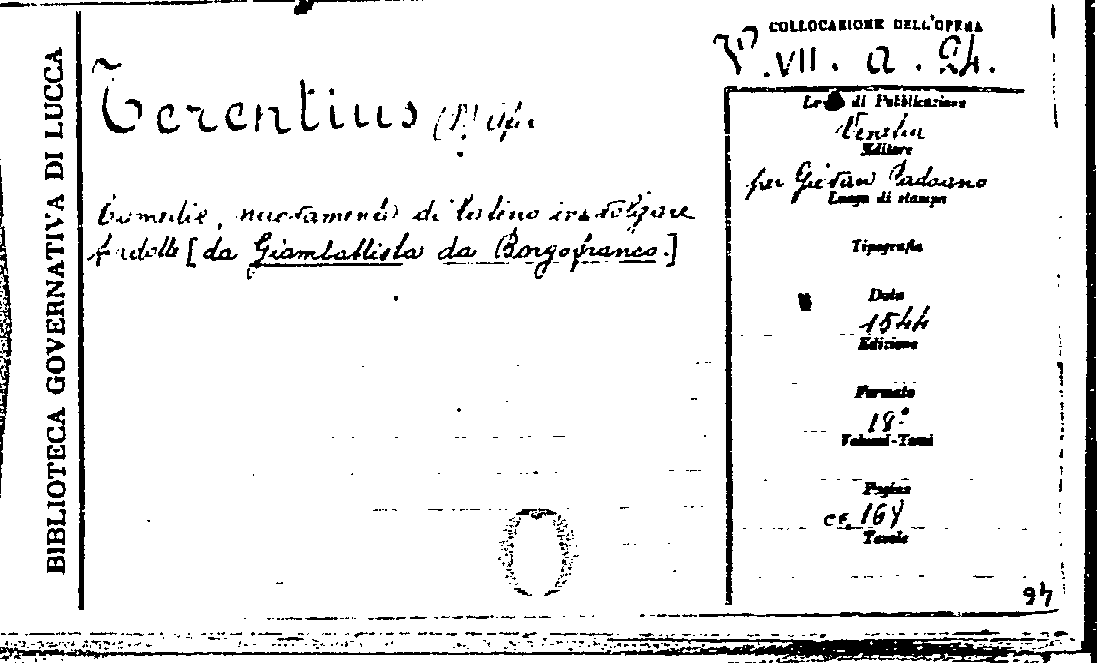 BIBLIOTECA GOVERNATIVA DI LUCCA
COLLOCAZIONE DELL'OPERA
VII. a. 24.
Terentius (P.) Afer
Comedie, nuovamente di latino in volgare
tradotte [da Giambattista da Borgofranco.]
di Pubblicazione
Venetia
Editore
per Giovan Padoano
Luogo di stampa
Tipografia
Data
1544
Edizione
Formato
18º
Volumi-Tomi
Pagine
cc. 164
Tavole